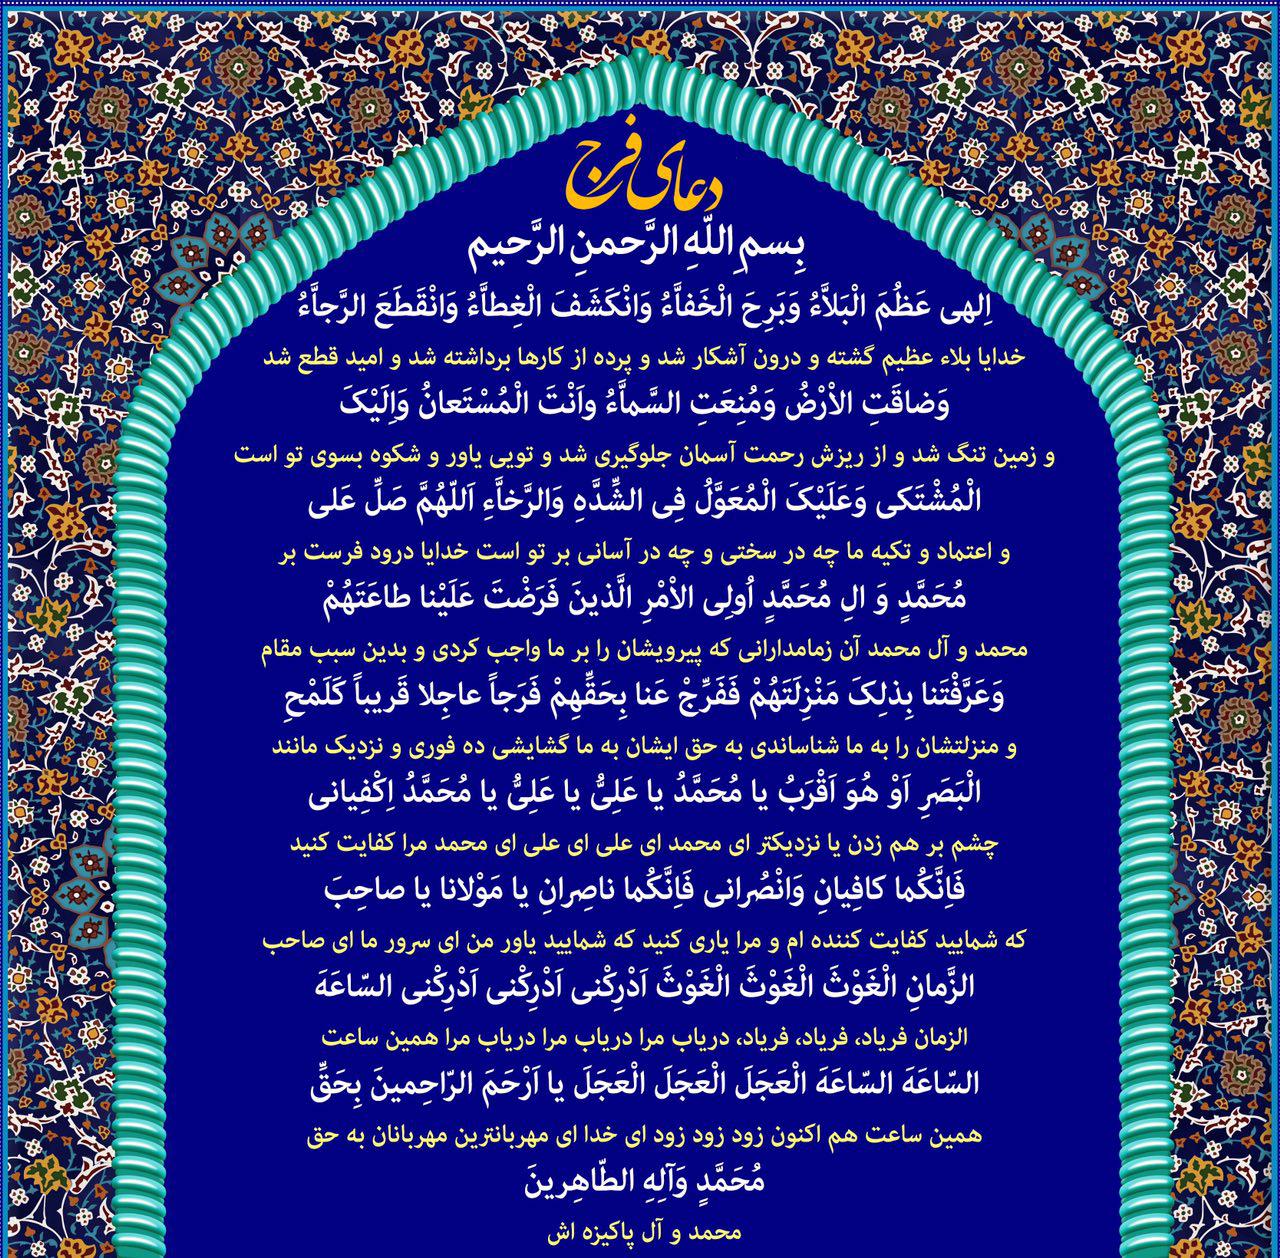 دعای فرج
بِسمِ اللّهِ الرَّحمنِ الرَّحیم
اِلهی عَظُمَ الْبَلاَّءُ وَبَرِحَ الْخَفاَّءُ وَانْکَشَفَ الْغِطاَّءُ وَانْقَطَعَ الرَّجاَّءُ
خدایا بلاء عظیم گشته و درون آشکار شد و پرده از کارها برداشته شد و امید قطع شد
وَضاقَتِ الاْرْضُ وَمُنِعَتِ السَّماَّءُ واَنْتَ الْمُسْتَعانُ وَاِلَیْکَ
و زمین تنگ شد و از ریزش رحمت آسمان جلوگیری شد و تویی یاور و شکوه بسوی تو است
الْمُشْتَکی وَعَلَیْکَ الْمُعَوَّلُ فِی الشِّدَّهِ وَالرَّخاَّءِ اَللّهُمَّ صَلِّ عَلی
و اعتماد و تکیه ما چه در سختی و چه در آسانی بر تو است خدایا درود فرست بر
مُحَمَّدٍ وَ الِ مُحَمَّدٍ اُولِی الاْمْرِ الَّذینَ فَرَضْتَ عَلَیْنا طاعَتَهُمْ
محمد و آل محمد آن زمامدارانی که پیرویشان را بر ما واجب کردی و بدین سبب مقام
وَعَرَّفْتَنا بِذلِکَ مَنْزِلَتَهُمْ فَفَرِّجْ عَنا بِحَقِّهِمْ فَرَجاً عاجِلا قَریباً کَلَمْحِ
و منزلتشان را به ما شناساندی به حق ایشان به ما گشایشی ده فوری و نزدیک مانند
الْبَصَرِ اَوْ هُوَ اَقْرَبُ یا مُحَمَّدُ یا عَلِیُّ یا عَلِیُّ یا مُحَمَّدُ اِکْفِیانی
چشم بر هم زدن یا نزدیکتر ای محمد ای علی ای علی ای محمد مرا کفایت کنید
فَاِنَّکُما کافِیانِ وَانْصُرانی فَاِنَّکُما ناصِرانِ یا مَوْلانا یا صاحِبَ
که شمایید کفایت کننده ام و مرا یاری کنید که شمایید یاور من ای سرور ما ای صاحب
الزَّمانِ الْغَوْثَ الْغَوْثَ الْغَوْثَ اَدْرِکْنی اَدْرِکْنی اَدْرِکْنی السّاعَهَ
الزمان فریاد، فریاد، فریاد، دریاب مرا دریاب مرا دریاب مرا همین ساعت
السّاعَهَ السّاعَهَ الْعَجَلَ الْعَجَلَ الْعَجَلَ یا اَرْحَمَ الرّاحِمینَ بِحَقِّ
همین ساعت هم اکنون زود زود زود ای خدا ای مهربانترین مهربانان به حق
مُحَمَّدٍ وَآلِهِ الطّاهِرینَ
محمد و آل پاکیزه اش